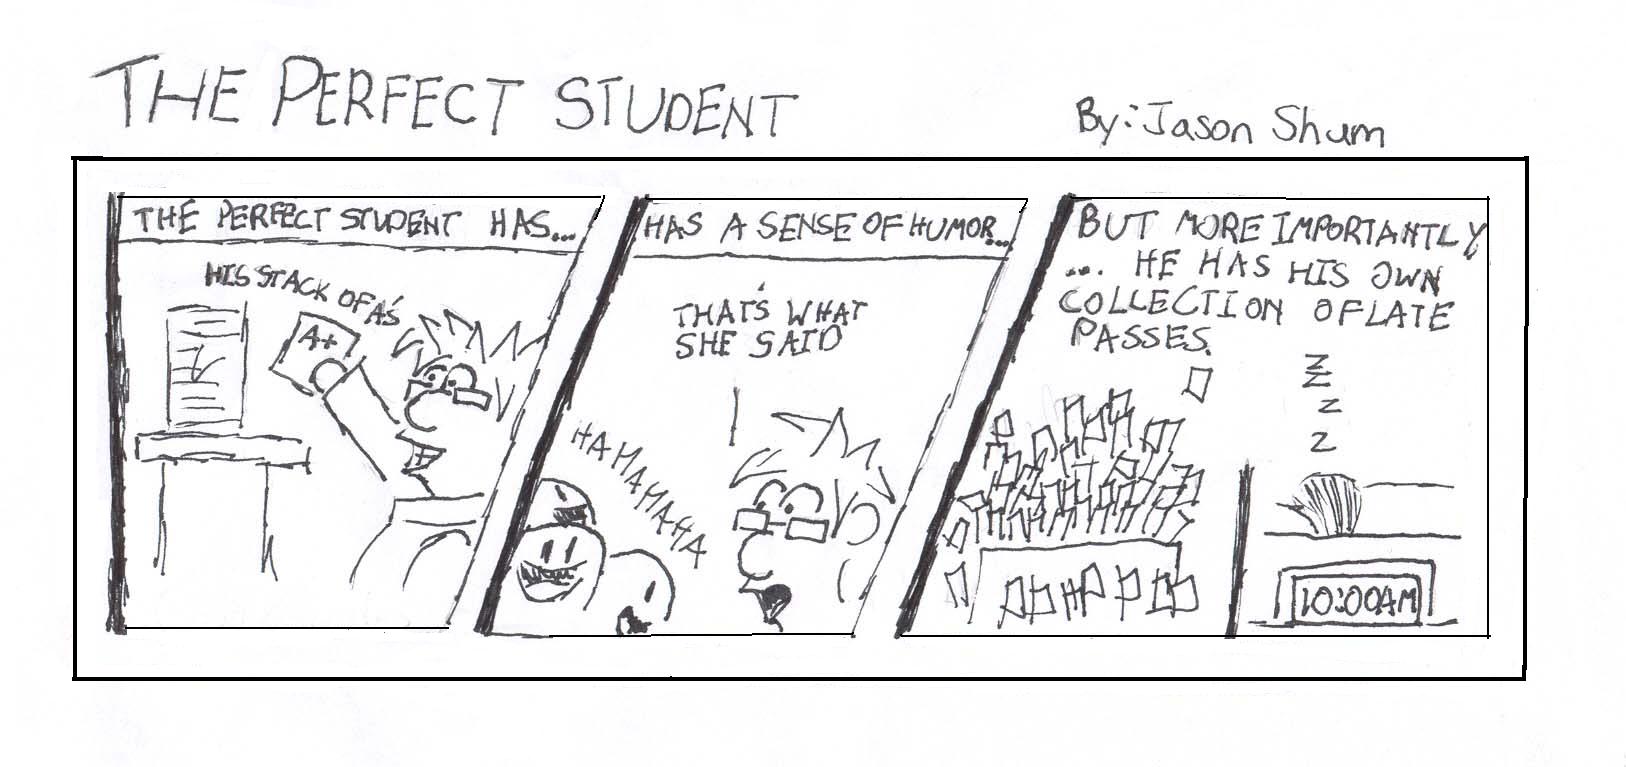 THE PERFECT STUDENT
By: Jason Shum
THE PERFECT STUDENT HAS...
HIS STACK OF A'S
A+
HAS A SENSE OF HUMOR...
THAT'S WHAT
SHE SAID
HA HA HA HA HA
BUT MORE IMPORTANTLY
... HE HAS HIS OWN
COLLECTION OF LATE
PASSES.
Z
Z
Z
Z
10:00AM